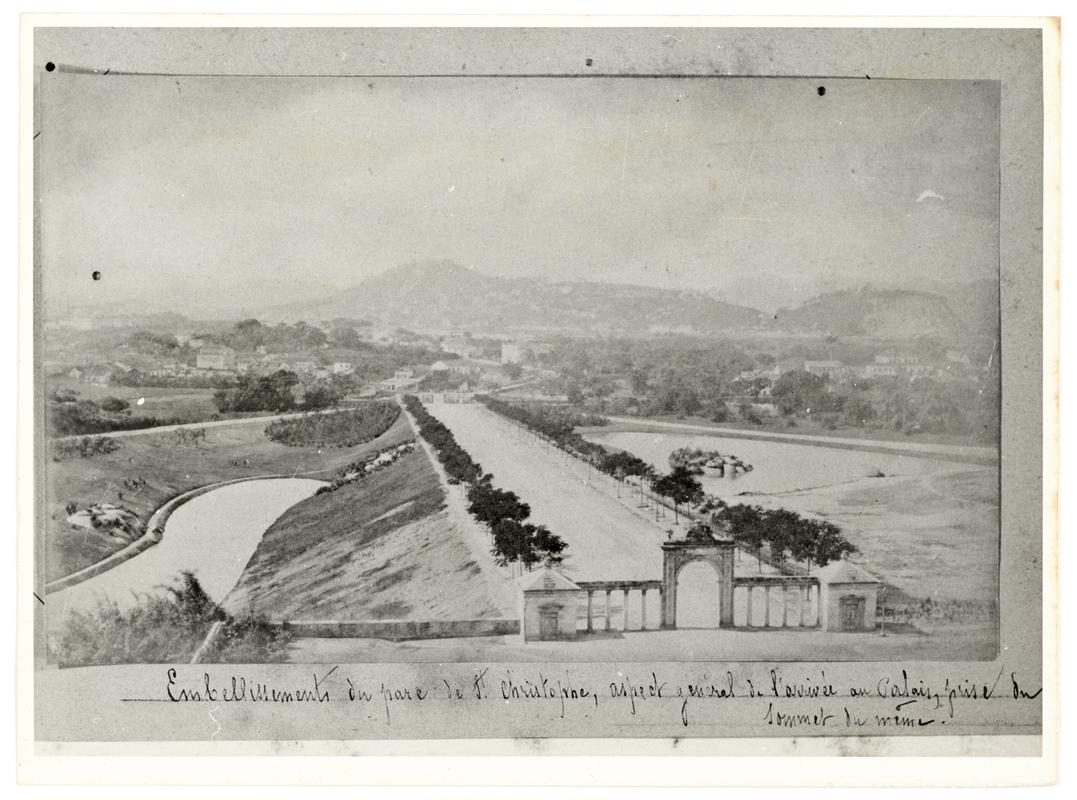 Embellissements du parc de St. Christophe, aspect général de l'arrivée au Palais, prise du
sommet du même.